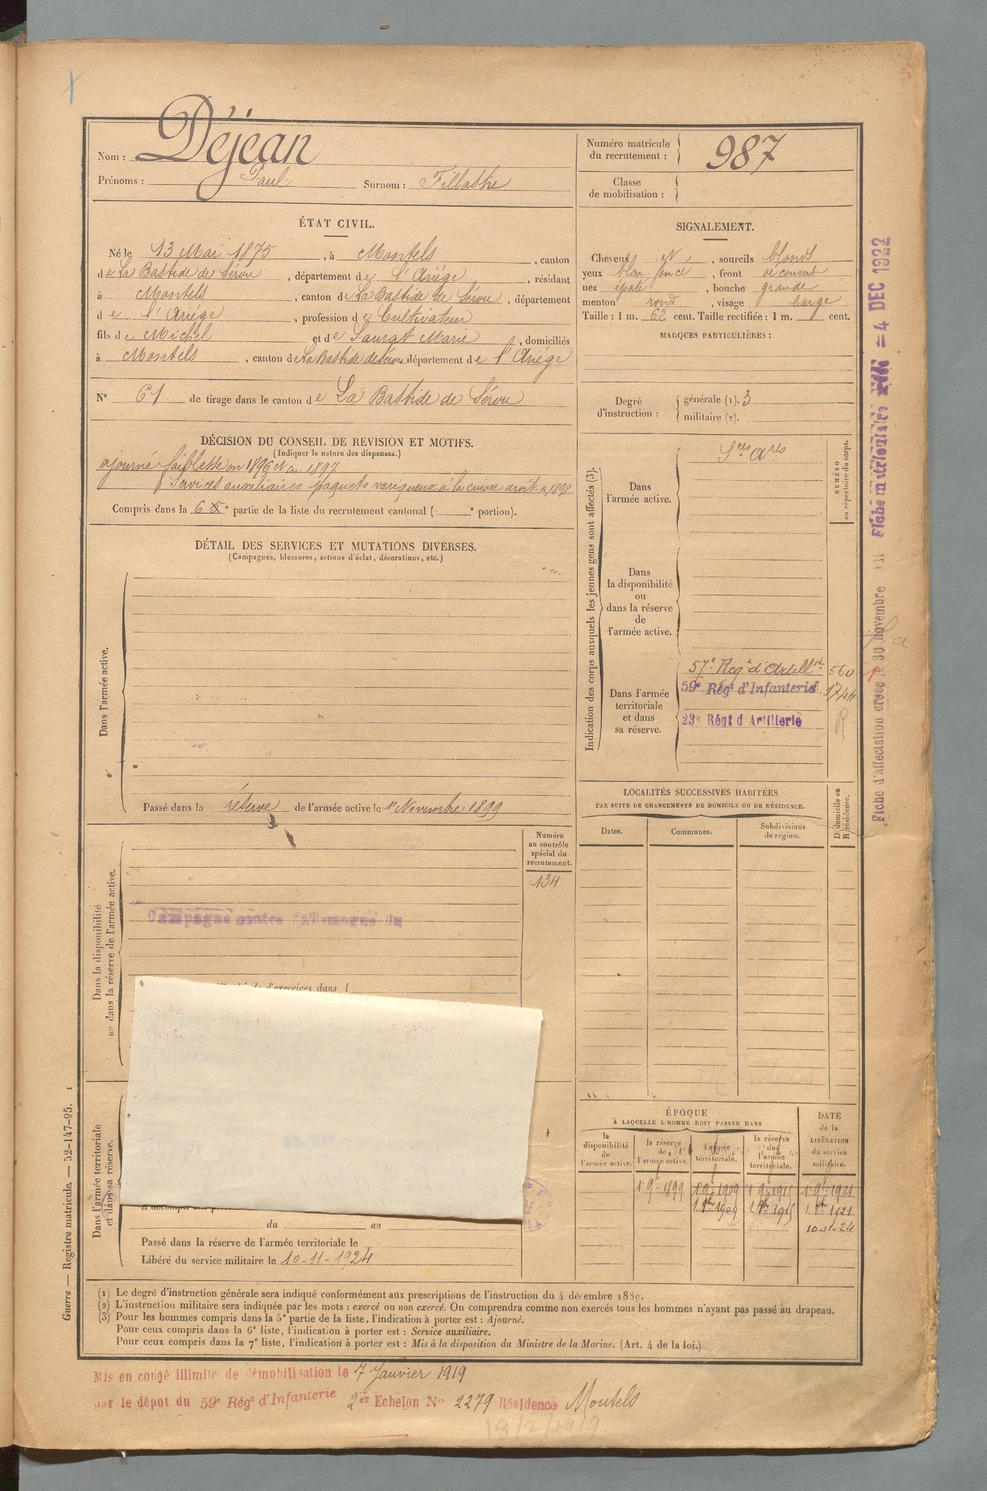 Nom : Déjean
Prénoms : Paul Surnom : Fillastre
Numéro matricule du recrutement : 987
Classe de mobilisation :
ÉTAT CIVIL.
Né le 13 Mai 1875, à Montels, canton
de La Bastide de Sérou, département de l'Ariège, résidant
à Montels, canton de La Bastide de Sérou, département
de l'Ariège, profession de Cultivateur
fils de Michel et de Laurat Marie, domiciliés
à Montels, canton de La Bastide de Sérou département de l'Ariège
N° 61 de tirage dans le canton de La Bastide de Sérou
SIGNALEMENT.
Cheveux et, sourcils blonds
yeux foncé, front découvert
nez épaté, bouche grande
menton rond, visage large
Taille : 1 m. 62 cent. Taille rectifiée : 1 m. cent.
MARQUES PARTICULIÈRES :
Degré d'instruction : générale (1). 3
militaire (2).
DÉCISION DU CONSEIL DE REVISION ET MOTIFS.
(Indiquer la nature des dispenses.)
ajourné faiblesse en 1896 et en 1897
Services auxiliaires paquets variqueux à la cuisse droite en 1898
Compris dans la 6e partie de la liste du recrutement cantonal ( e portion).
DÉTAIL DES SERVICES ET MUTATIONS DIVERSES.
(Campagnes, blessures, actions d'éclat, décorations, etc.)
Dans l'armée active.
Passé dans la réserve de l'armée active le 1er Novembre 1899
Indication des corps auxquels les jeunes gens sont affectés (3).
NUMÉRO au répertoire du corps.
Dans l'armée active.
Sces Ares
Dans la disponibilité ou dans la réserve de l'armée active.
Dans l'armée territoriale et dans sa réserve.
57e Regt d'Artillie 560
59e Régt d'Infanterie 1744
23e Régt d'Artillerie R
Fiche d'affectation créée le 30 novembre
Fiche matriculaire = 4 DEC 1922
LOCALITÉS SUCCESSIVES HABITÉES
PAR SUITE DE CHANGEMENTS DE DOMICILE OU DE RÉSIDENCE.
D. domicile ou R. résidence.
Dates. Communes. Subdivisions de région.
Dans la disponibilité ou dans la réserve de l'armée active.
Numéro au contrôle spécial du recrutement.
134
Campagne contre l'Allemagne du
d'exercices dans l
Dans l'armée territoriale et dans sa réserve.
du au
Passé dans la réserve de l'armée territoriale le
Libéré du service militaire le 10-11-1924
ÉPOQUE
À LAQUELLE L'HOMME DOIT PASSER DANS
la disponibilité de l'armée active.
la réserve de l'armée active.
l'armée territoriale.
la réserve de l'armée territoriale.
DATE de la LIBÉRATION du service militaire.
1 9bre 1899 1 9bre 1909 1 9bre 1915 1 9bre 1921
1 8bre 1909 1 8bre 1915 1 8bre 1921
10-11-24
(1) Le degré d'instruction générale sera indiqué conformément aux prescriptions de l'instruction du 4 décembre 1889.
(2) L'instruction militaire sera indiquée par les mots : exercé ou non exercé. On comprendra comme non exercés tous les hommes n'ayant pas passé au drapeau.
(3) Pour les hommes compris dans la 5e partie de la liste, l'indication à porter est : Ajourné.
Pour ceux compris dans la 6e liste, l'indication à porter est : Service auxiliaire.
Pour ceux compris dans la 7e liste, l'indication à porter est : Mis à la disposition du Ministre de la Marine. (Art. 4 de la loi.)
Guerre — Registre matricule. — 52-147-95. 1
Mis en congé illimité de démobilisation le 7 Janvier 1919
par le dépôt du 59e Régt d'Infanterie 2er Echelon No 2279 Résidence Montels
18/2/1919